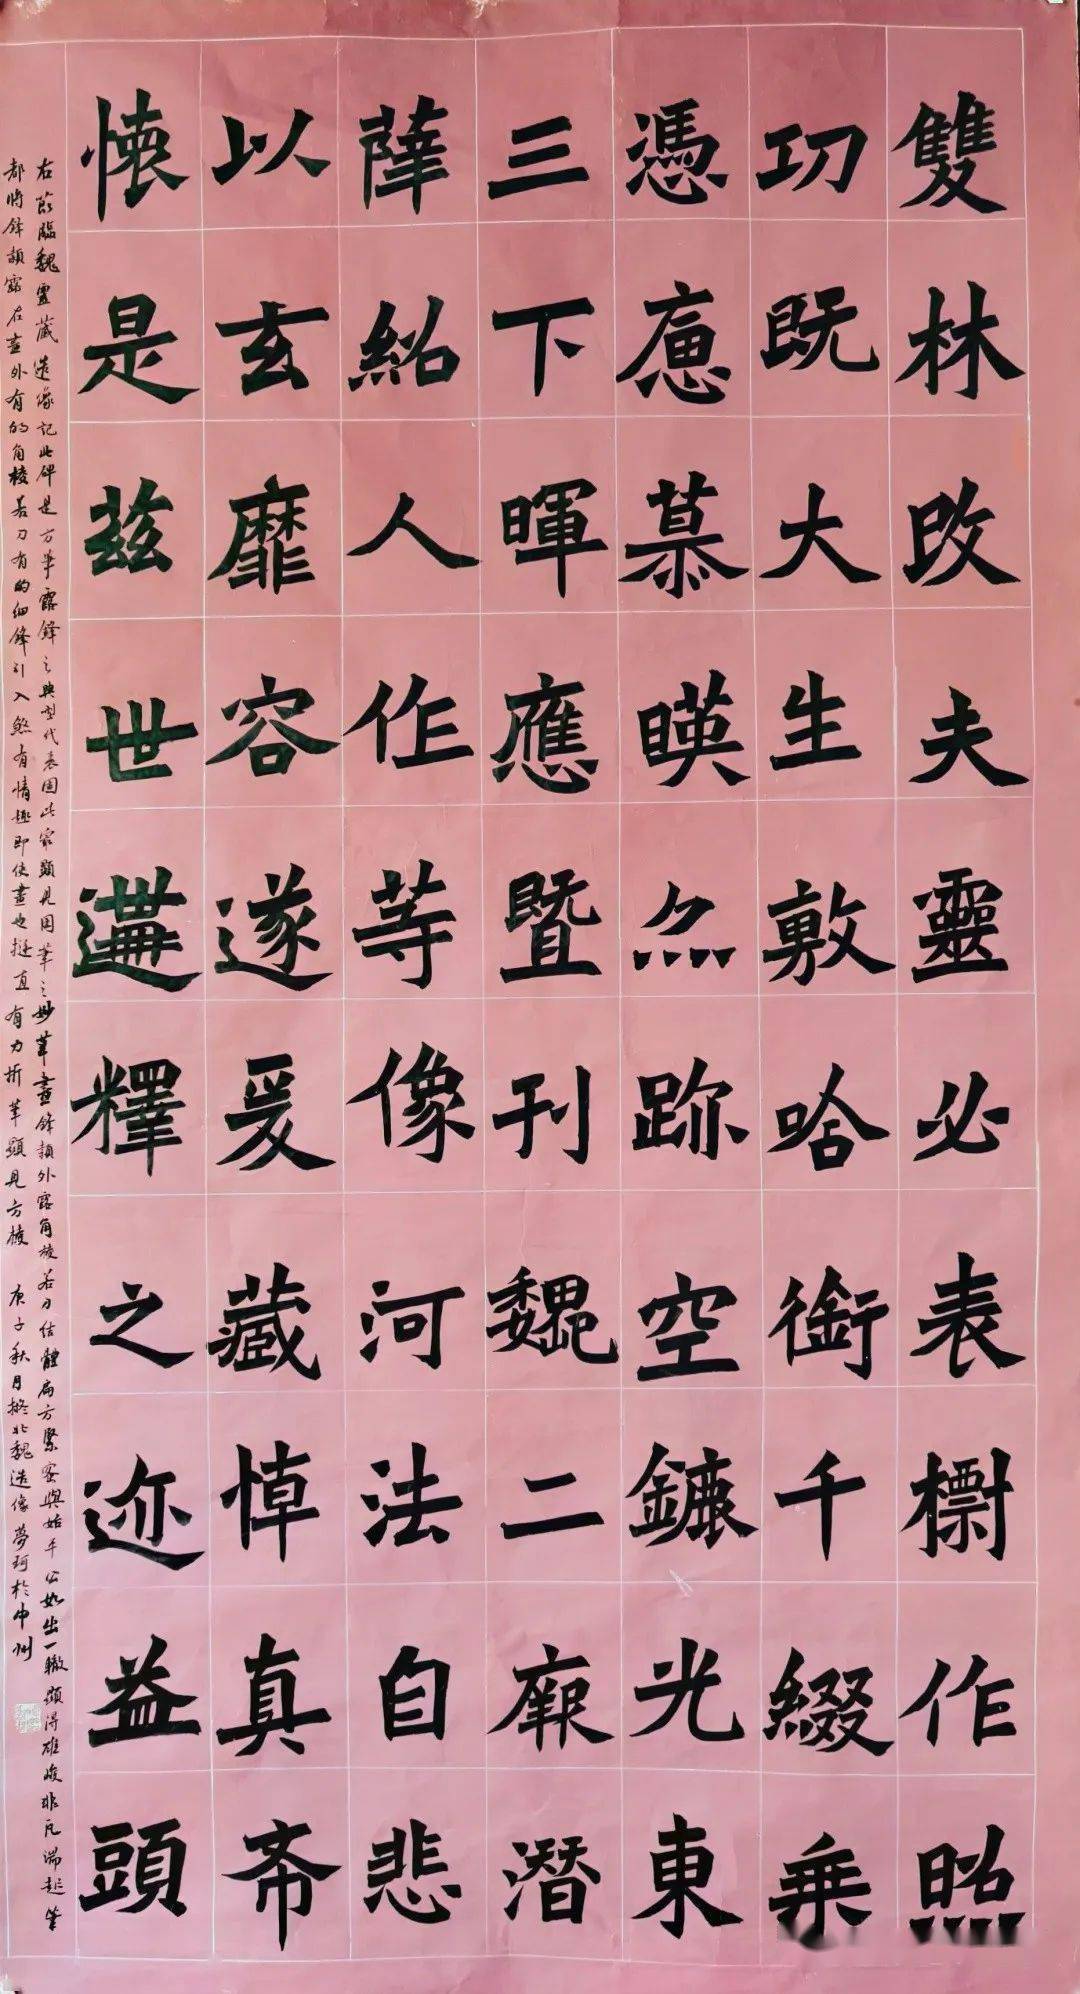 雙林改夫靈必表櫯作照
功既大生敷唅銜千綴乗
憑悳慕暎尒跡空鏕光東
三下暉應暨刊魏二㡿潛
薩紹人作䒭像河法自悲
以玄靡容遂爰藏悼真帝
懐是兹世遘釋之迹益頭
右節臨魏靈藏造像記此碑是方筆露鋒之典型代表因此容顯見用筆之妙筆畫鋒穎外露角棱若刀结體扁方緊密與始平公如出一轍顯得雄峻非凡端起筆
都將鋒穎露在畫外有的角棱若刀有的细鋒引入煞有情趣即使畫也挺直有力折筆顯見方棱 庚子秋月 北魏造像夢珂於中州